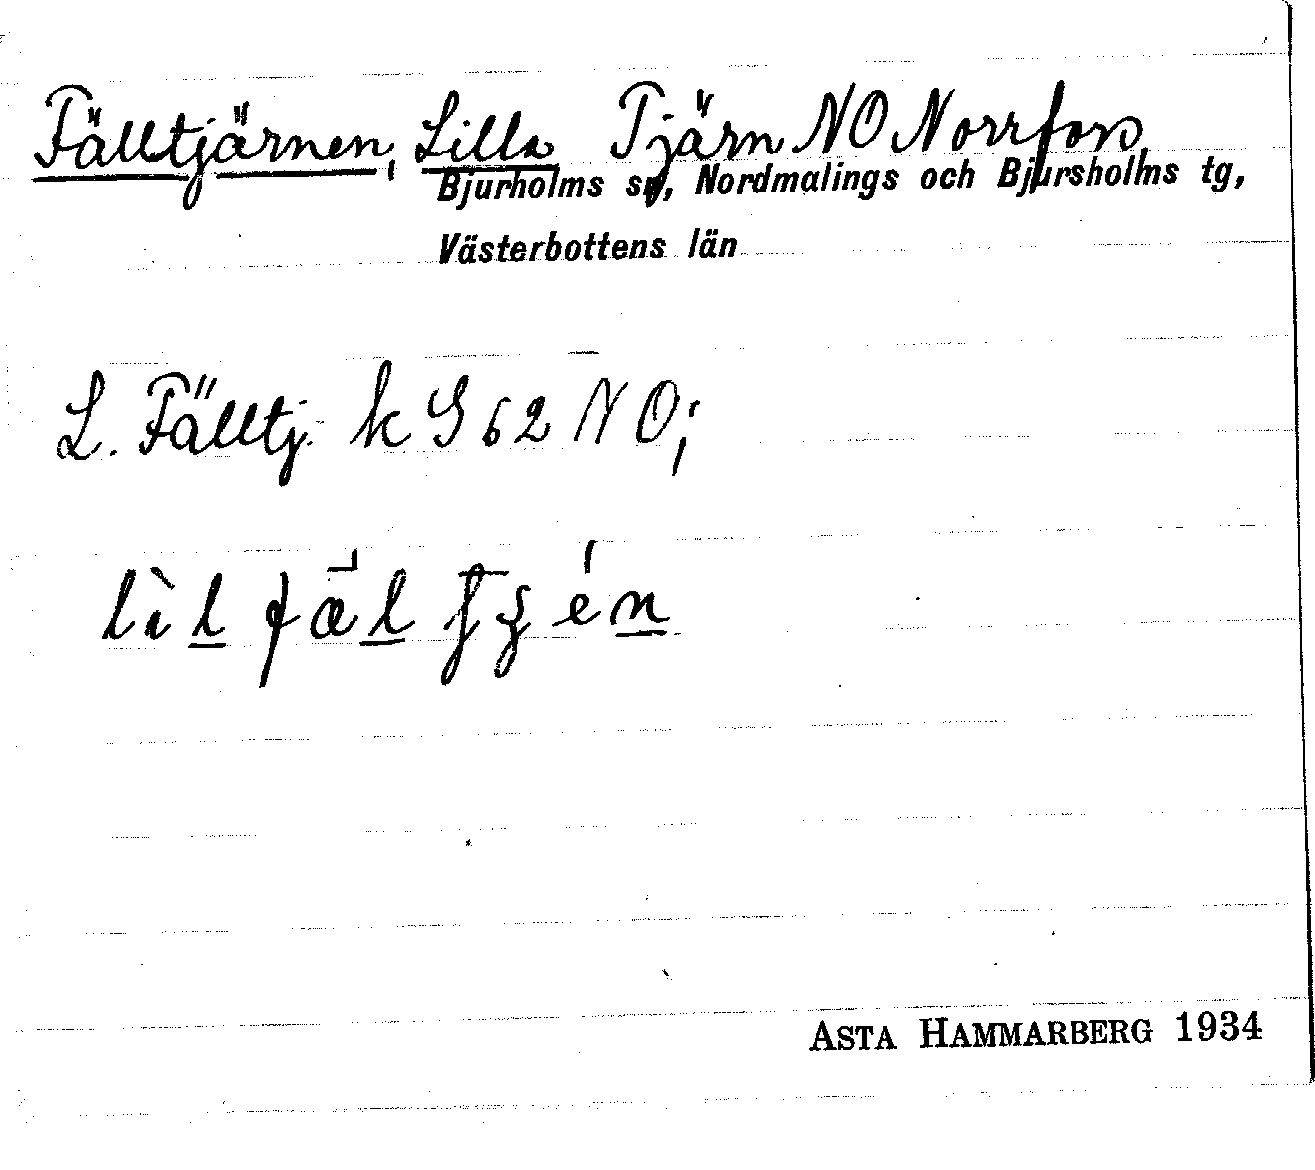 Fälltjärnen, Lilla Tjärn NO Norrfors
Bjurholms sn, Nordmalings och Bjursholms tg,
Västerbottens län
L. Fälltj. k G 62 NO;
ASTA HAMMARBERG 1934